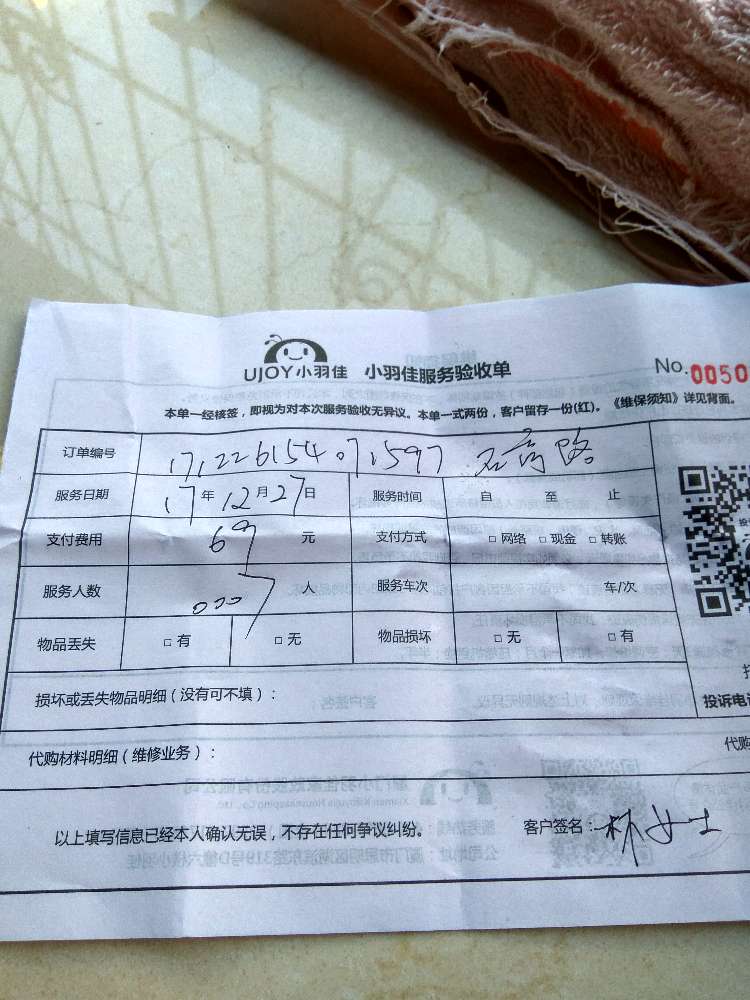 UJOY小羽佳 小羽佳服务验收单 No.0050
本单一经核签，即视为对本次服务验收无异议。本单一式两份，客户留存一份(红)。《维保须知》详见背面。
订单编号 171226154071597
服务日期 17年12月27日 服务时间 自 至 止
支付费用 69 元 支付方式 □ 网络 □ 现金 □ 转账
服务人数 0007 人 服务车次 车/次
物品丢失 □ 有 □ 无 物品损坏 □ 无 □ 有
损坏或丢失物品明细（没有可不填）：
投诉电
代购材料明细（维修业务）： 代购
以上填写信息已经本人确认无误，不存在任何争议纠纷。 客户签名：林女士